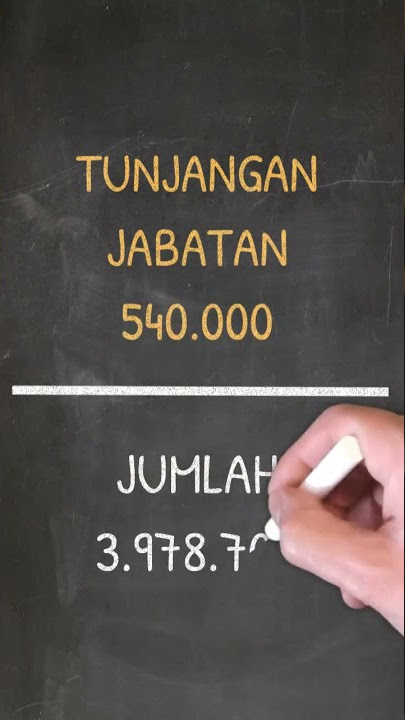 TUNJANGAN
JABATAN
540.000
JUMLAH
3.978.7